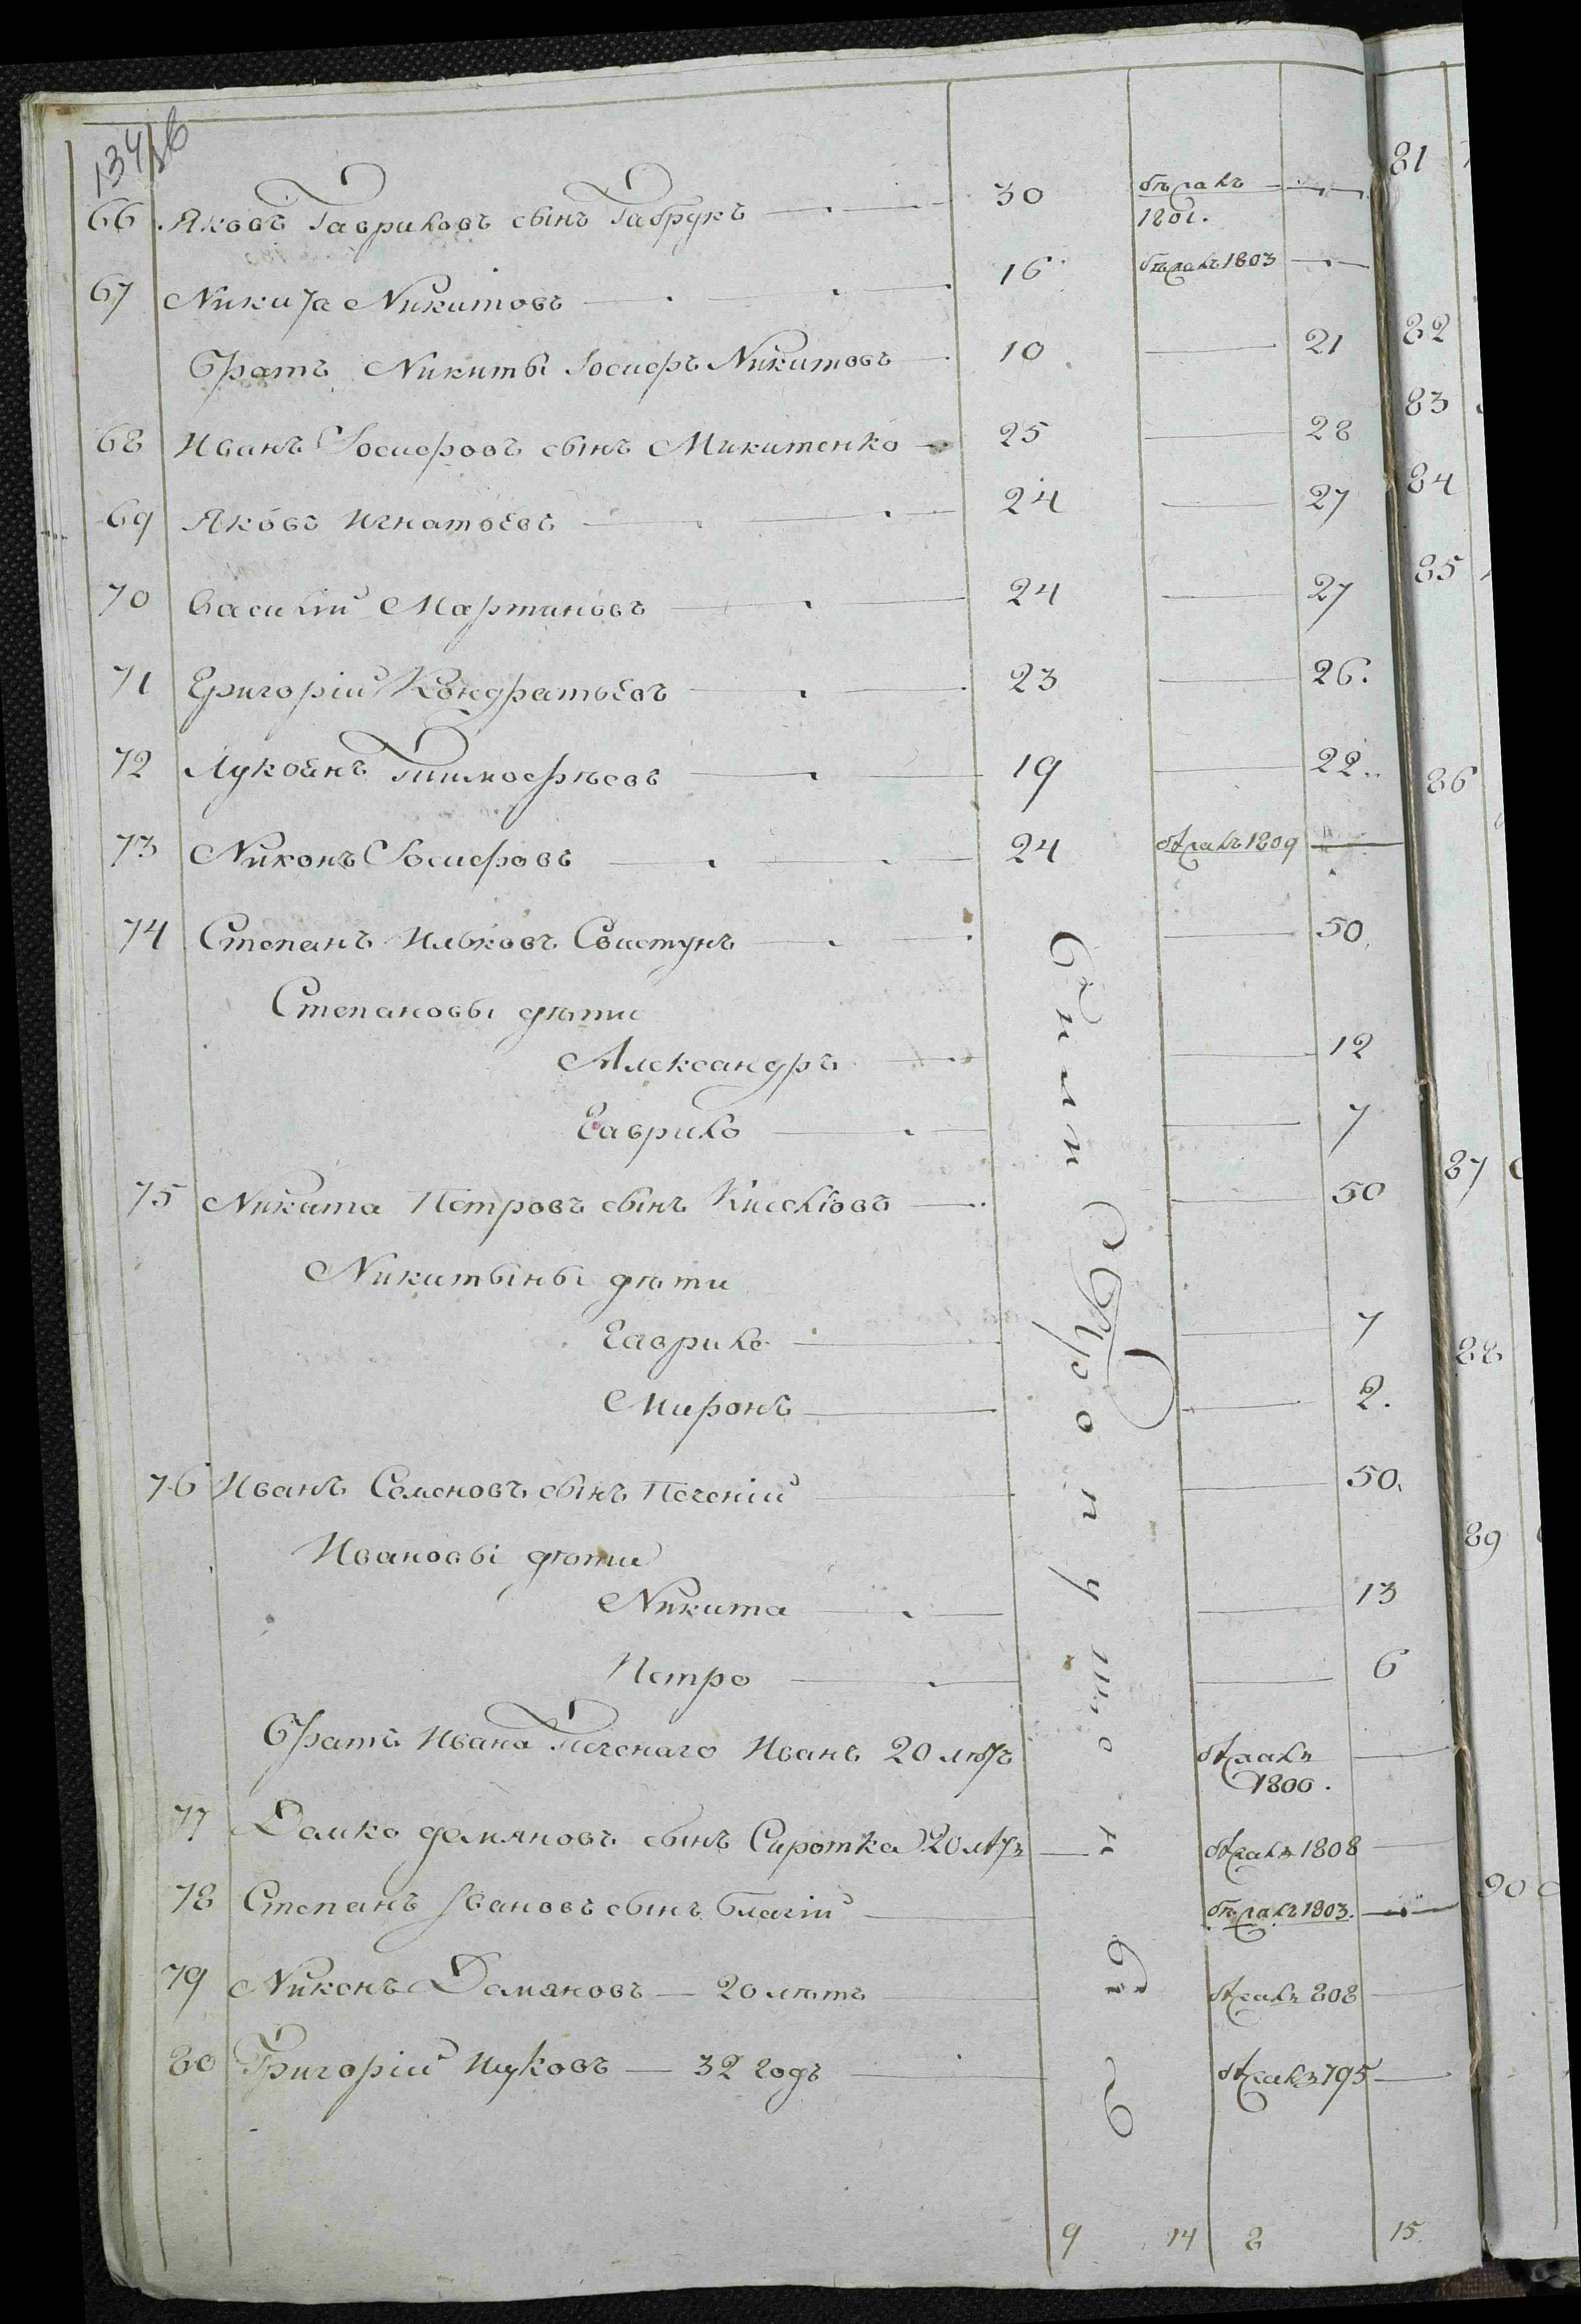 134 об
66 Яковъ Гавриловъ сынъ Габрукъ 30 бѣжалъ
1801.
67 Никита Никитовъ 16 бѣжалъ 1803
Братъ Никиты Іосифъ Никитовъ 10 21
68 Иванъ Іосифовъ сынъ Микитенко 25 28
69 Яковъ Игнатьевъ 24 27
70 Василій Мартиновъ 24 27
71 Григорій Кондратьевъ 23 26.
72 Лукьянъ Тимофѣевъ 19 22.
73 Никонъ Іосифовъ 24 бѣжалъ 1809
74 Степанъ Ильковъ Свистунъ 50.
Степановы дѣти
Александръ 12
Гаврило 7
75 Никита Петровъ сынъ Киселіовъ 50
Никитины дѣти
Гаврило 7
Миронъ 2.
76 Иванъ Семеновъ сынъ Печеній 50.
Ивановы дѣти
Никита 13
Петро 6
Братъ Ивана Печенаго Иванъ 20 лѣтъ бѣжалъ
1800.
77 Демко Демяновъ сынъ Сиротка 20 лѣтъ бѣжалъ 1808
78 Степанъ Івановъ сынъ Благій бѣжалъ 1803.
79 Никонъ Демяновъ 20 лѣтъ бѣжалъ 808
80 Григорій Жуковъ 32 годъ бѣжалъ 795
были пропущены
9 14 8 15
81
82
83
84
85
86
87
88
89
90